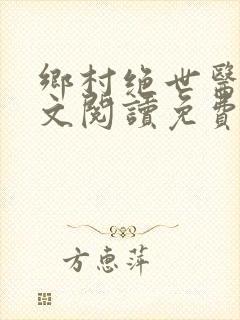 鄉村絕世醫
文閱讀免費
方惠萍